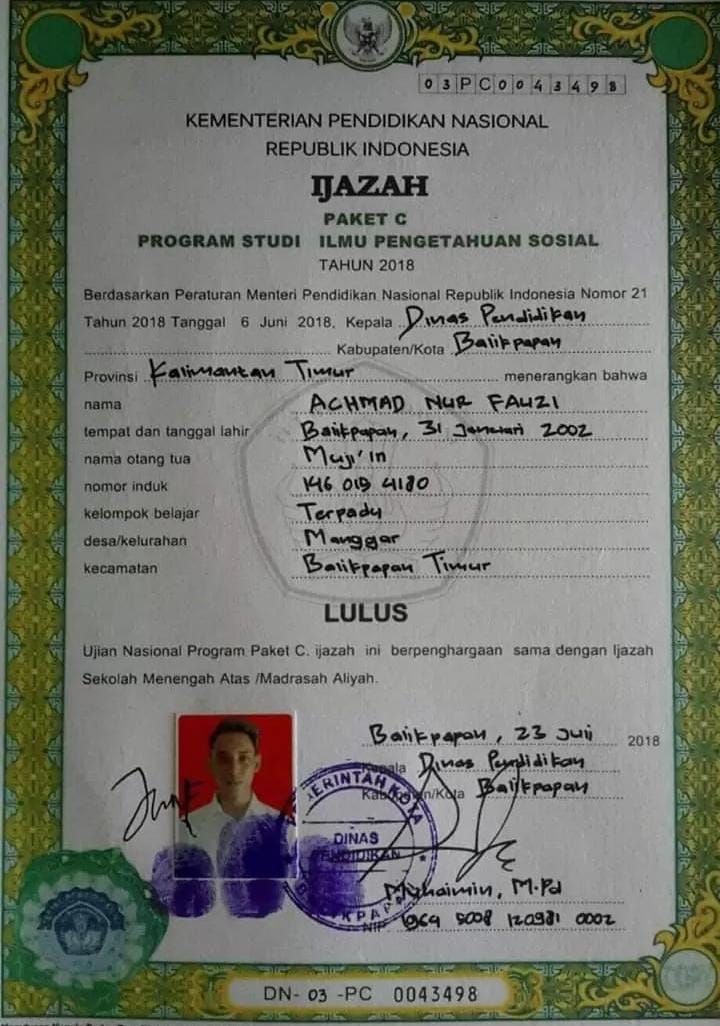 03PC0043498
KEMENTERIAN PENDIDIKAN NASIONAL
REPUBLIK INDONESIA
IJAZAH
PAKET C
PROGRAM STUDI ILMU PENGETAHUAN SOSIAL
TAHUN 2018
Berdasarkan Peraturan Menteri Pendidikan Nasional Republik Indonesia Nomor 21
Tahun 2018 Tanggal 6 Juni 2018, Kepala Dinas Pendidikan
Kabupaten/Kota Balikpapan
Provinsi Kalimantan Timur menerangkan bahwa
nama ACHMAD NUR FAUZI
tempat dan tanggal lahir Balikpapan, 31 Januari 2002
nama otang tua Muji'in
nomor induk 146 019 4180
kelompok belajar Terpadu
desa/kelurahan Manggar
kecamatan Balikpapan Timur
LULUS
Ujian Nasional Program Paket C. ijazah ini berpenghargaan sama dengan Ijazah
Sekolah Menengah Atas /Madrasah Aliyah.
Balikpapan, 23 Juli 2018
Kepala Dinas Pendidikan
Kabupaten/Kota Balikpapan
DINAS
PENDIDIKAN
Muhaimin, M.Pd
NIP 1969 5008 120981 0002
DN- 03 -PC 0043498
COPY